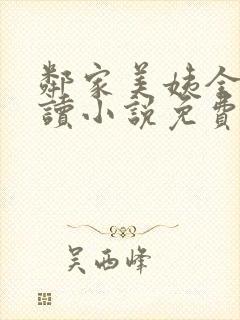 鄰家美姨全
讀小説免費
吴西峰